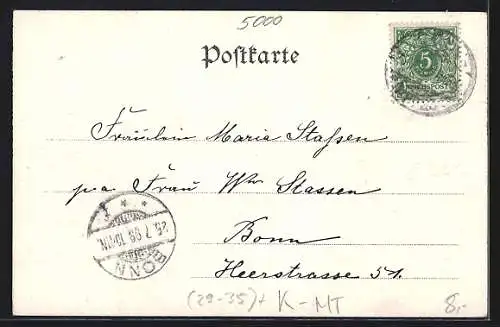 5000
Postkarte
5
REICHSPOST
Fräulein Maria Stassen
p.a. Frau Ww Stassen
Bonn
Heerstrasse 51.
BONN
(29-35)+ K-MT
8,-